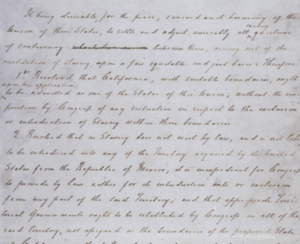 It being desirable, for the peace, concord and harmony of the
Union of these States, to settle and adjust amicably all existing questions
of controversy between them, arising out of the
institution of slavery upon a fair equitable and just basis: Therefore
1st Resolved that California, with suitable boundaries, ought
upon her application
to be admitted as one of the States of this Union, without the im-
position by Congress of any restriction in respect to the exclusion
or introduction of Slavery within those boundaries
2 Resolved that as Slavery does not exist by law, and is not likely
to be introduced into any of the Territory acquired by the United
States from the Republic of Mexico, it is inexpedient for Congress
to provide by law either for its introduction into or exclusion
from any part of the said Territory; and that appropriate Terri-
torial Governments ought to be established by Congress in all of the
said Territory, not assigned as the boundaries of the proposed State